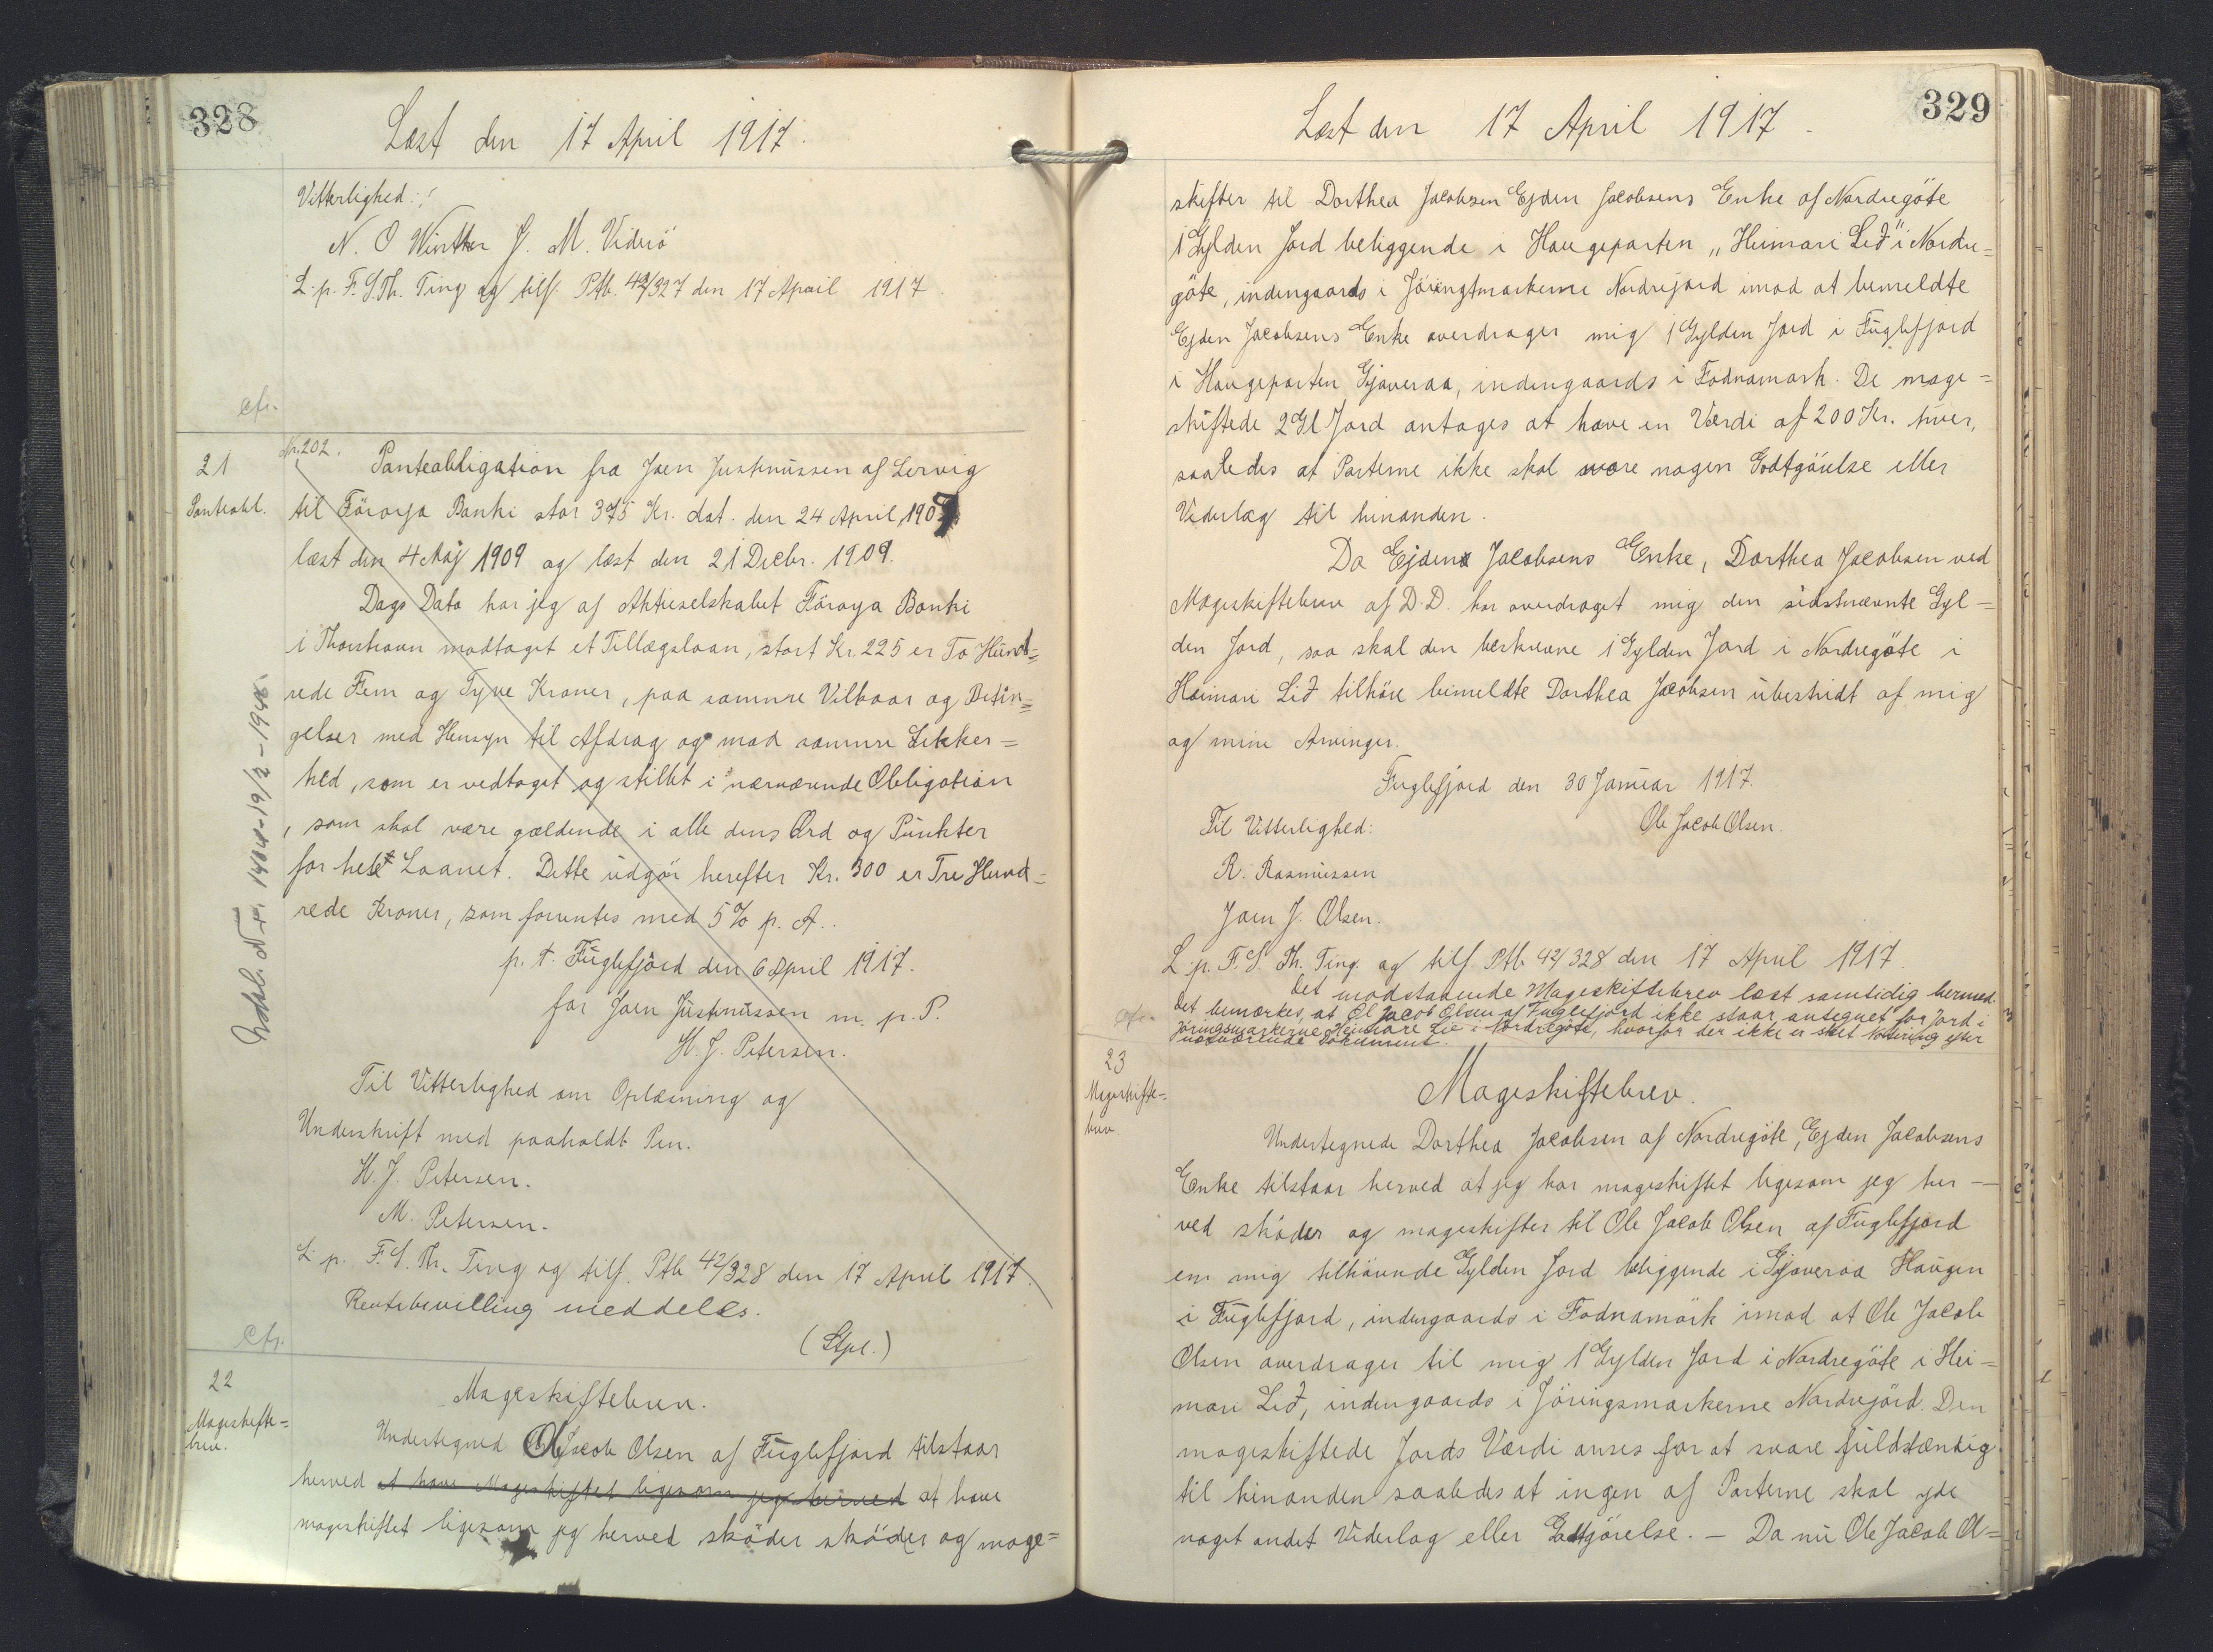 328
Læst den 17 April 1917.
Vitterlighed:
N. O Winther J. M. Viderö
L. p. F. S. Th. Ting og tilf. Ptb. 42/327 den 17 April 1917.
cfr.
21
Panteobl.
Nr. 202.
Panteobligation fra Joen Justinussen af Lervig
til Föroya Banki stor 375 Kr. dat. den 24 April 1909
læst den 4 Maj 1909 og læst den 21 Decbr. 1909.
Dags Dato har jeg af Aktieselskabet Föroya Banki
i Thorshavn modtaget et Tillægslaan, stort Kr. 225 er To Hund=
rede Fem og Tyve Kroner, paa samme Vilkaar og Betin=
gelser med Hensyn til Afdrag og mod samme Sikker=
hed, som er vedtaget og stillet i nærværende Obligation
, som skal være gældende i alle dens Ord og Punkter
for hele Laanet. Dette udgör herefter Kr. 300 er Tre Hund=
rede Kroner, som forrentes med 5% p. A..
p. t. Fuglefjord den 6 April 1917.
for Joen Justinussen m. p. P.
H. J. Petersen.
Til Vitterlighed om Oplæsning og
Underskrift med paaholdt Pen.
H. J. Petersen.
M. Petersen.
L. p. F. S. Th. Ting og tilf. Ptb 42/328 den 17 April 1917.
Rentebevilling meddeles.
(Stpl.)
cfr.
22
Mageskifte=
brev.
Mageskiftebrev.
Undertegned Ole Jacob Olsen af Fuglefjord tilstaar
herved at have Mageskiftet ligesom jeg herved at have
mageskiftet ligesom jeg herved sköder sköder og mage=
329
Læst den 17 April 1917.
skifter til Dorthea Jacobsen Ejden Jacobsens Enke af Nordregöte
1 Gylden Jord beliggende i Haugeparten „Heimari Lið" i Nordre=
göte, indengaards i Jöringtmarkerne Nordrejord imod at bemeldte
Ejden Jacobsens Enke overdrager mig 1 Gylden Jord i Fuglefjord
i Haugeparten Gjaveraa, indengaards i Fodnamark. De mage=
skiftede 2 Gl Jord antages at have en Værdi af 200 Kr. hver,
saaledes at Parterne ikke skal svare nogen Godtgörelse eller
Vederlag til hinanden.
Da Ejdens Jacobsens Enke, Dorthea Jacobsen ved
Mageskiftebrev af D. D. har overdraget mig den sidstnævnte Gyl=
den Jord, saa skal den beskrevne 1 Gylden Jord i Nordregöte i
Heimari Lið tilhöre bemeldte Dorthea Jacobsen ubestridt af mig
og mine Arvinger.
Fuglefjord den 30 Januar 1917.
Til Vitterlighed:
Ole Jacob Olsen.
R. Rasmussen
Joen J. Olsen.
L. p. F. S. Th. Ting. og tilf. Ptb 42/328 den 17 April 1917.
Det modstaaende Mageskiftebrev læst samtidig hermed.
Det bemærkes, at Ol Jacob Olsen af Fuglefjord ikke staar antegnet for Jord i
Jöringsmarkerne Heimare Lið i Nordregöte, hvorfor der ikke er sket Notering efter
nærværende Dokument.
cfr.
23
Mageskifte=
brev.
Mageskiftebrev.
Undertegnede Dorthea Jacobsen af Nordregöte, Ejden Jacobsens
Enke tilstaar herved at jeg har mageskiftet ligesom jeg her—
ved sköder og mageskifter til Ole Jacob Olsen af Fuglefjord
en mig tilhörende Gylden Jord beliggende i Gjaveraa Haugen
i Fuglefjord, indengaards i Fodnamörk imod at Ole Jacob
Olsen overdrager til mig 1 Gylden Jord i Nordregöte i Hei=
mari Lið, indengaards i Jöringsmarkerne Nordrejörd. Den
mageskiftede Jords Værdi anses for at svare fuldstændig
til hinanden saaledes at ingen af Parterne skal yde
noget andet Vederlag eller Godtgörelse. — Da nu Ole Jacob Ol=